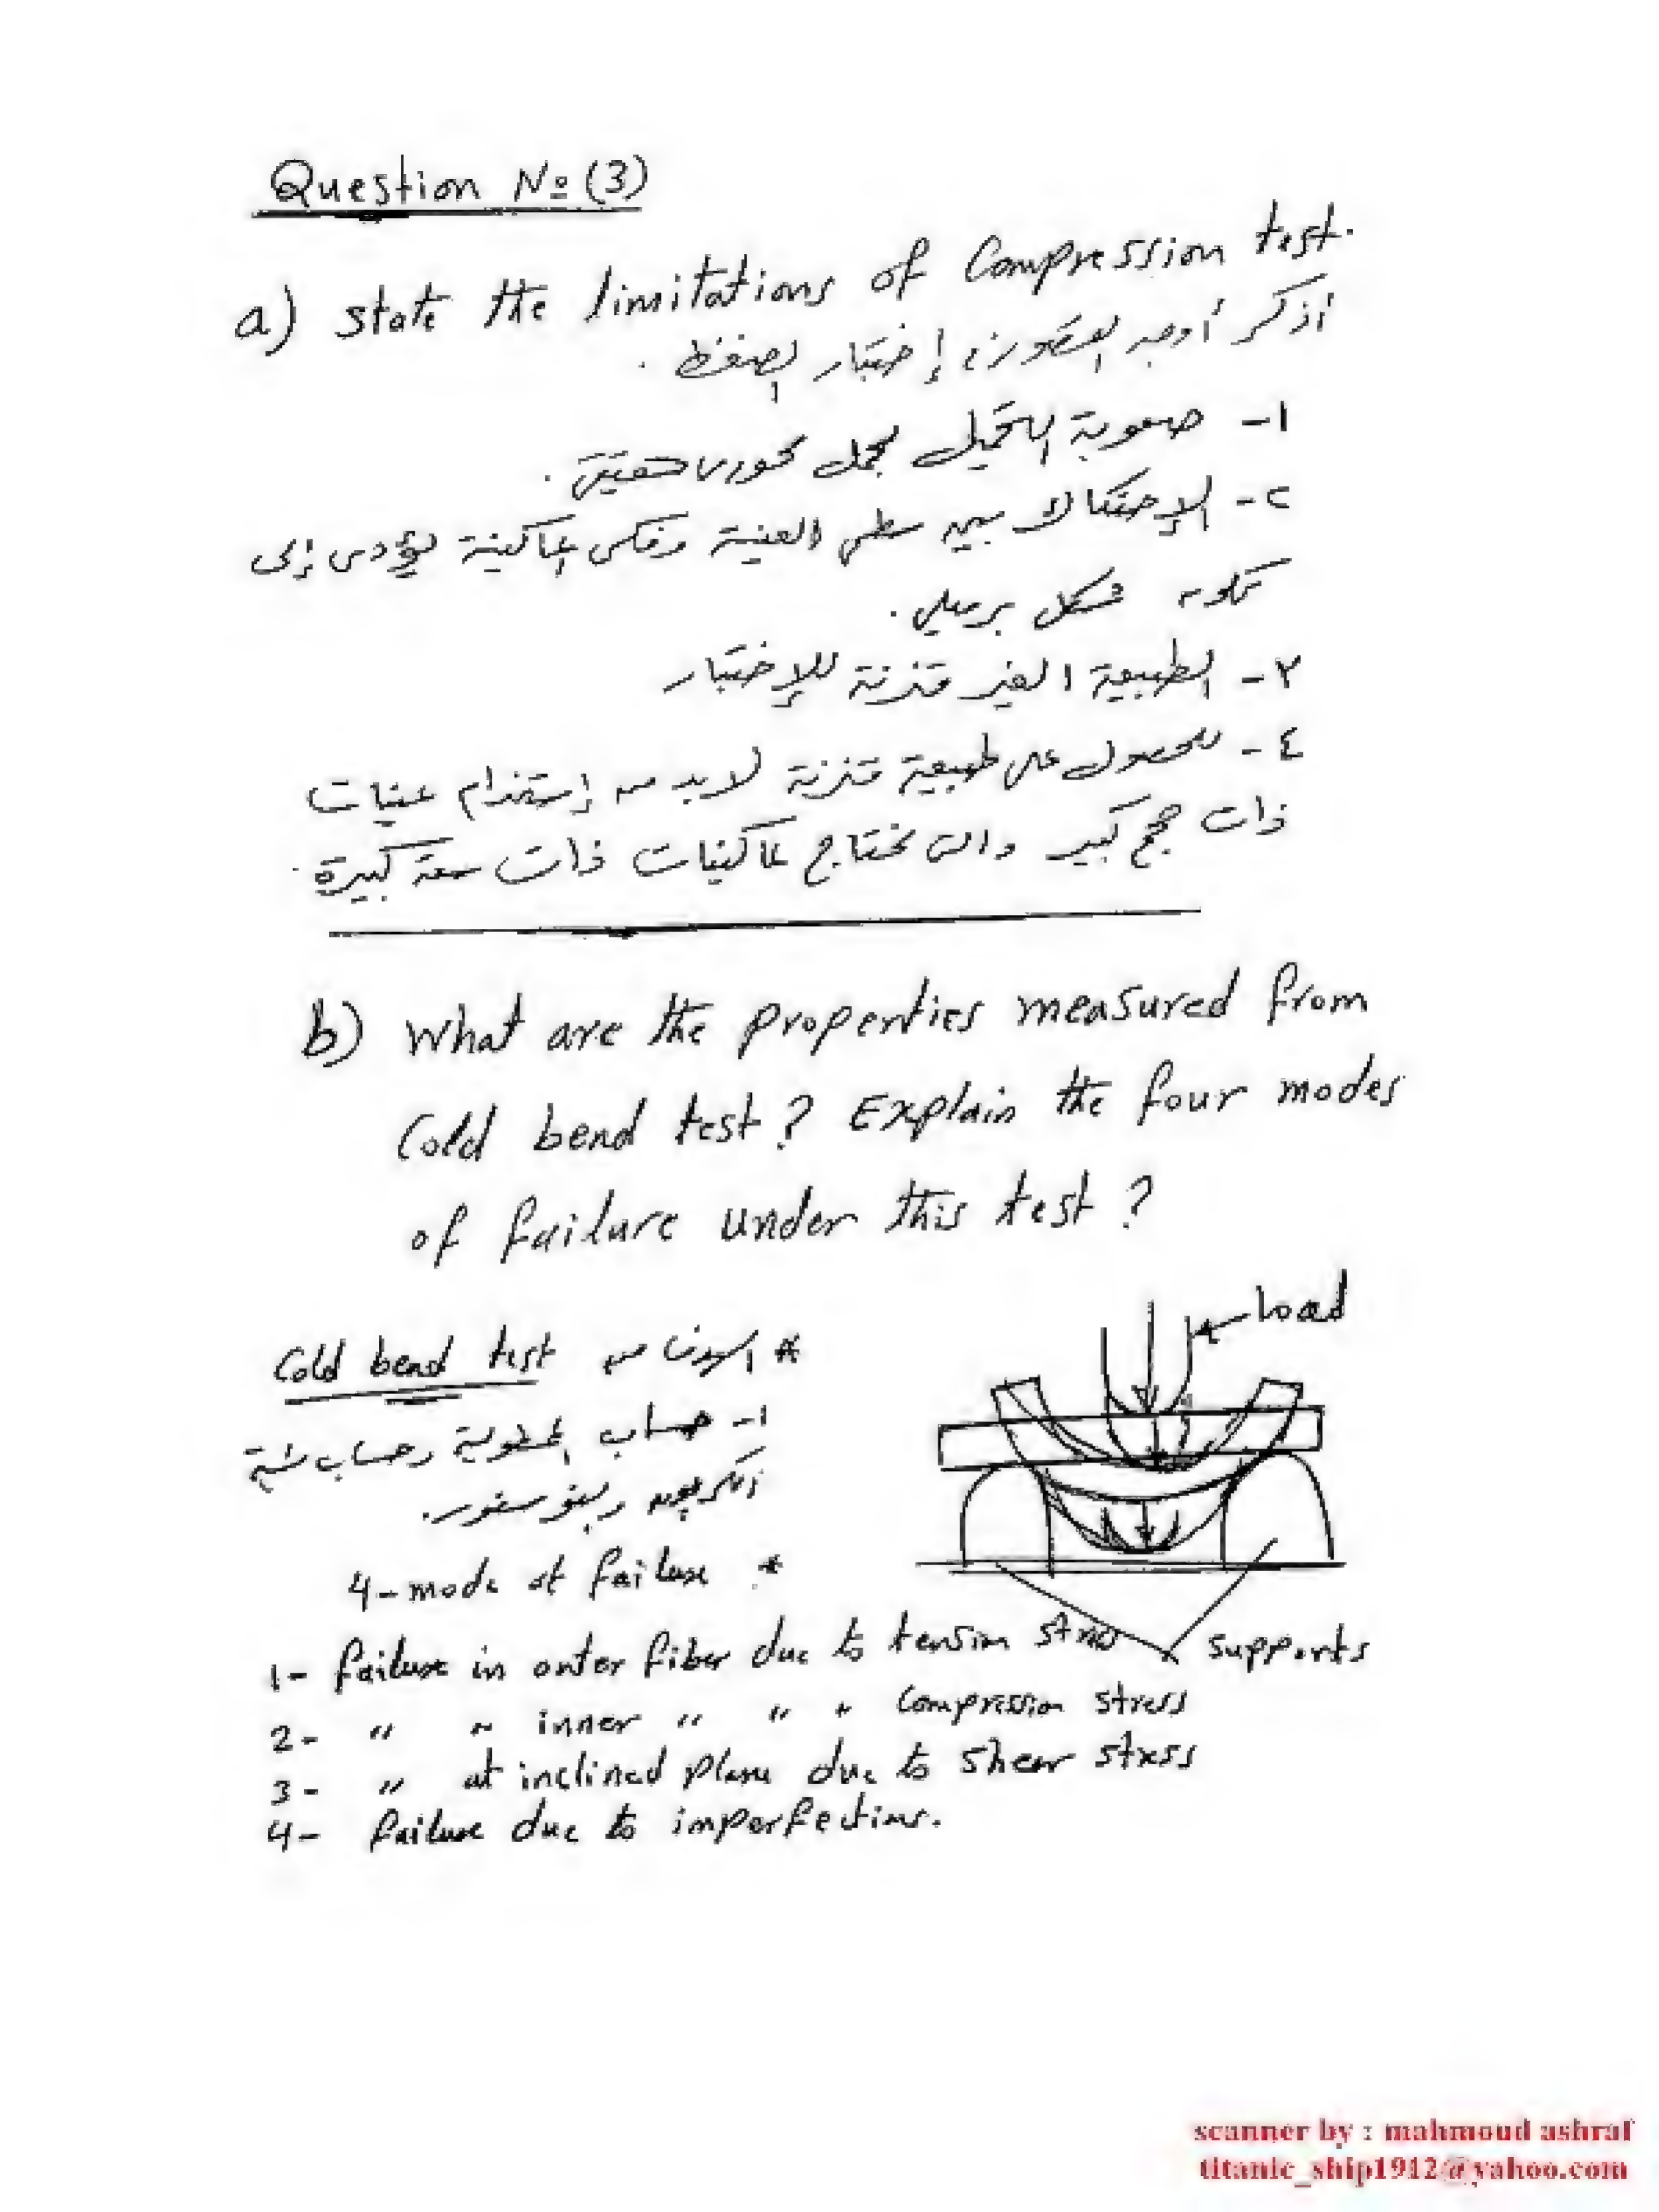 Question No (3)
a) state the limitations of Compression test.
أذكر أوجه القصور في إختبار الضغط .
١- صعوبة التحميل بحمل محورى حقيقى .
٢- الإحتكاك بين سطح العينة وفكى الماكينة يؤدى إلى
تكون شكل برميلى .
٣- الطبيعة الغير متزنة للإختبار
٤- للحصول على طبيعة متزنة لابد من إستخدام عينات
ذات حجم كبير والتى تحتاج ماكينات ذات سعة كبيرة .
b) What are the properties measured from
Cold bend test? Explain the four modes
of failure under this test?
Load
* الهدف من Cold bend test
١- حساب الممطولية وحساب نسبة
الكربون والفوسفور.
* 4-mode of failure
supports
1- failure in outer fiber due to tension stress
2- " " inner " " " Compression stress
3- " at inclined plane due to shear stress
4- failure due to imperfections.
scanner by : mahmoud ashraf
titanic_ship1912@yahoo.com